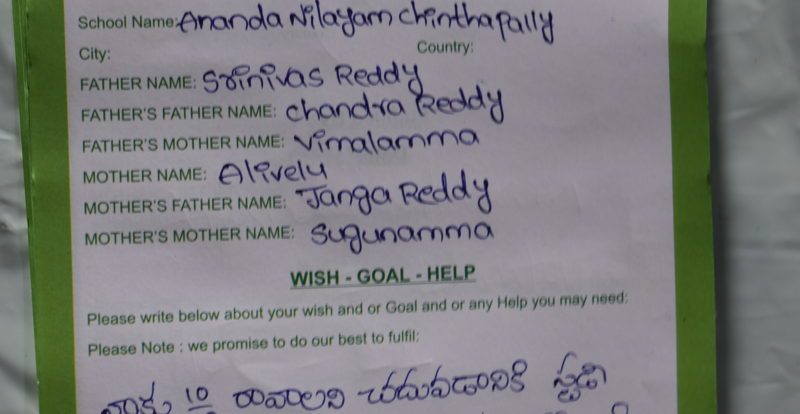 School Name: Ananda Nilayam Chinthapally
City: Country:
FATHER NAME: Srinivas Reddy
FATHER'S FATHER NAME: Chandra Reddy
FATHER'S MOTHER NAME: Vimalamma
MOTHER NAME: Alivelu
MOTHER'S FATHER NAME: Janga Reddy
MOTHER'S MOTHER NAME: Sugunamma
WISH - GOAL - HELP
Please write below about your wish and or Goal and or any Help you may need:
Please Note : we promise to do our best to fulfil:
నాకు 10 రావాలని చదువడానికి స్టడి